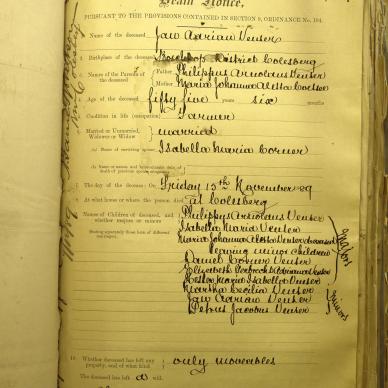 Death Notice,
PURSUANT TO THE PROVISIONS CONTAINED IN SECTION 9, ORDINANCE No. 104.
1. Name of the deceased Jan Adrian Venter
2. Birthplace of the deceased District Colesberg
3. Names of the Parents of the deceased
Father Philippus Arnoldus Venter
Mother Maria Johanna Aletta Coetsee
4. Age of the deceased fifty five years six months
5. Condition in life (occupation) Farmer
6. Married or Unmarried, Widower or Widow married
(a) Name of surviving spouse Isabella Maria Corner
(b) Name or names and approximate date of death of previous spouse or spouses
7. The day of the decease: On Friday 15th November 89
8. At what house or where the person died at Colesberg
9. Names of Children of deceased, and whether majors or minors
Stating separately those born of different marriages.
Philippus Arnoldus Venter
Isabella Maria Venter
Maria Johanna Aletta Venter deceased
leaving minor children
Daniel Corner Venter
Elizabeth Adriana Venter
Hester Maria Isabella Venter
Martha Cecilia Venter
Jan Adrian Venter
Petrus Jacobus Venter
majors
minors
10. Whether deceased has left any property, and of what kind only movables
The deceased has left a will